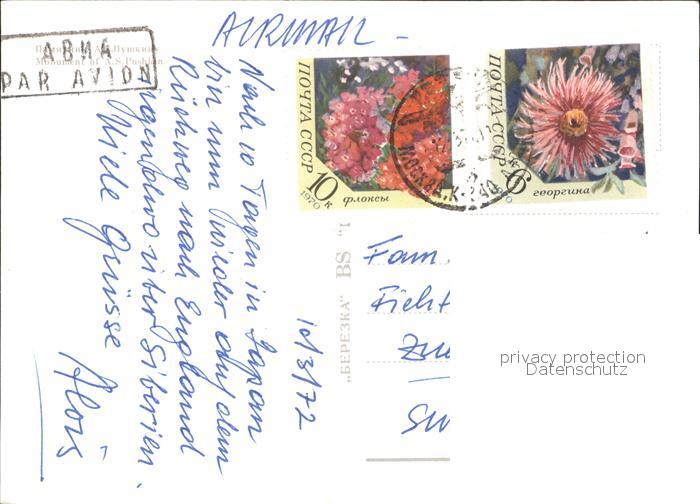 AIRMAIL -
Памятник А.С.Пушкину
Monument of A.S.Pushkin
АВИА
PAR AVION
Nach 10 Tagen in Japan
bin nun wieder auf dem
Rückweg nach England
irgendwo über Siberien.
Viele Grüsse
Alois
10/3/72
ПОЧТА СССР
10 к
1970
флоксы
ПОЧТА СССР
6 к
георгина
МОСКВА
„БЕРЕЗКА" BS "1
Fam.
privacy protection
Datenschutz